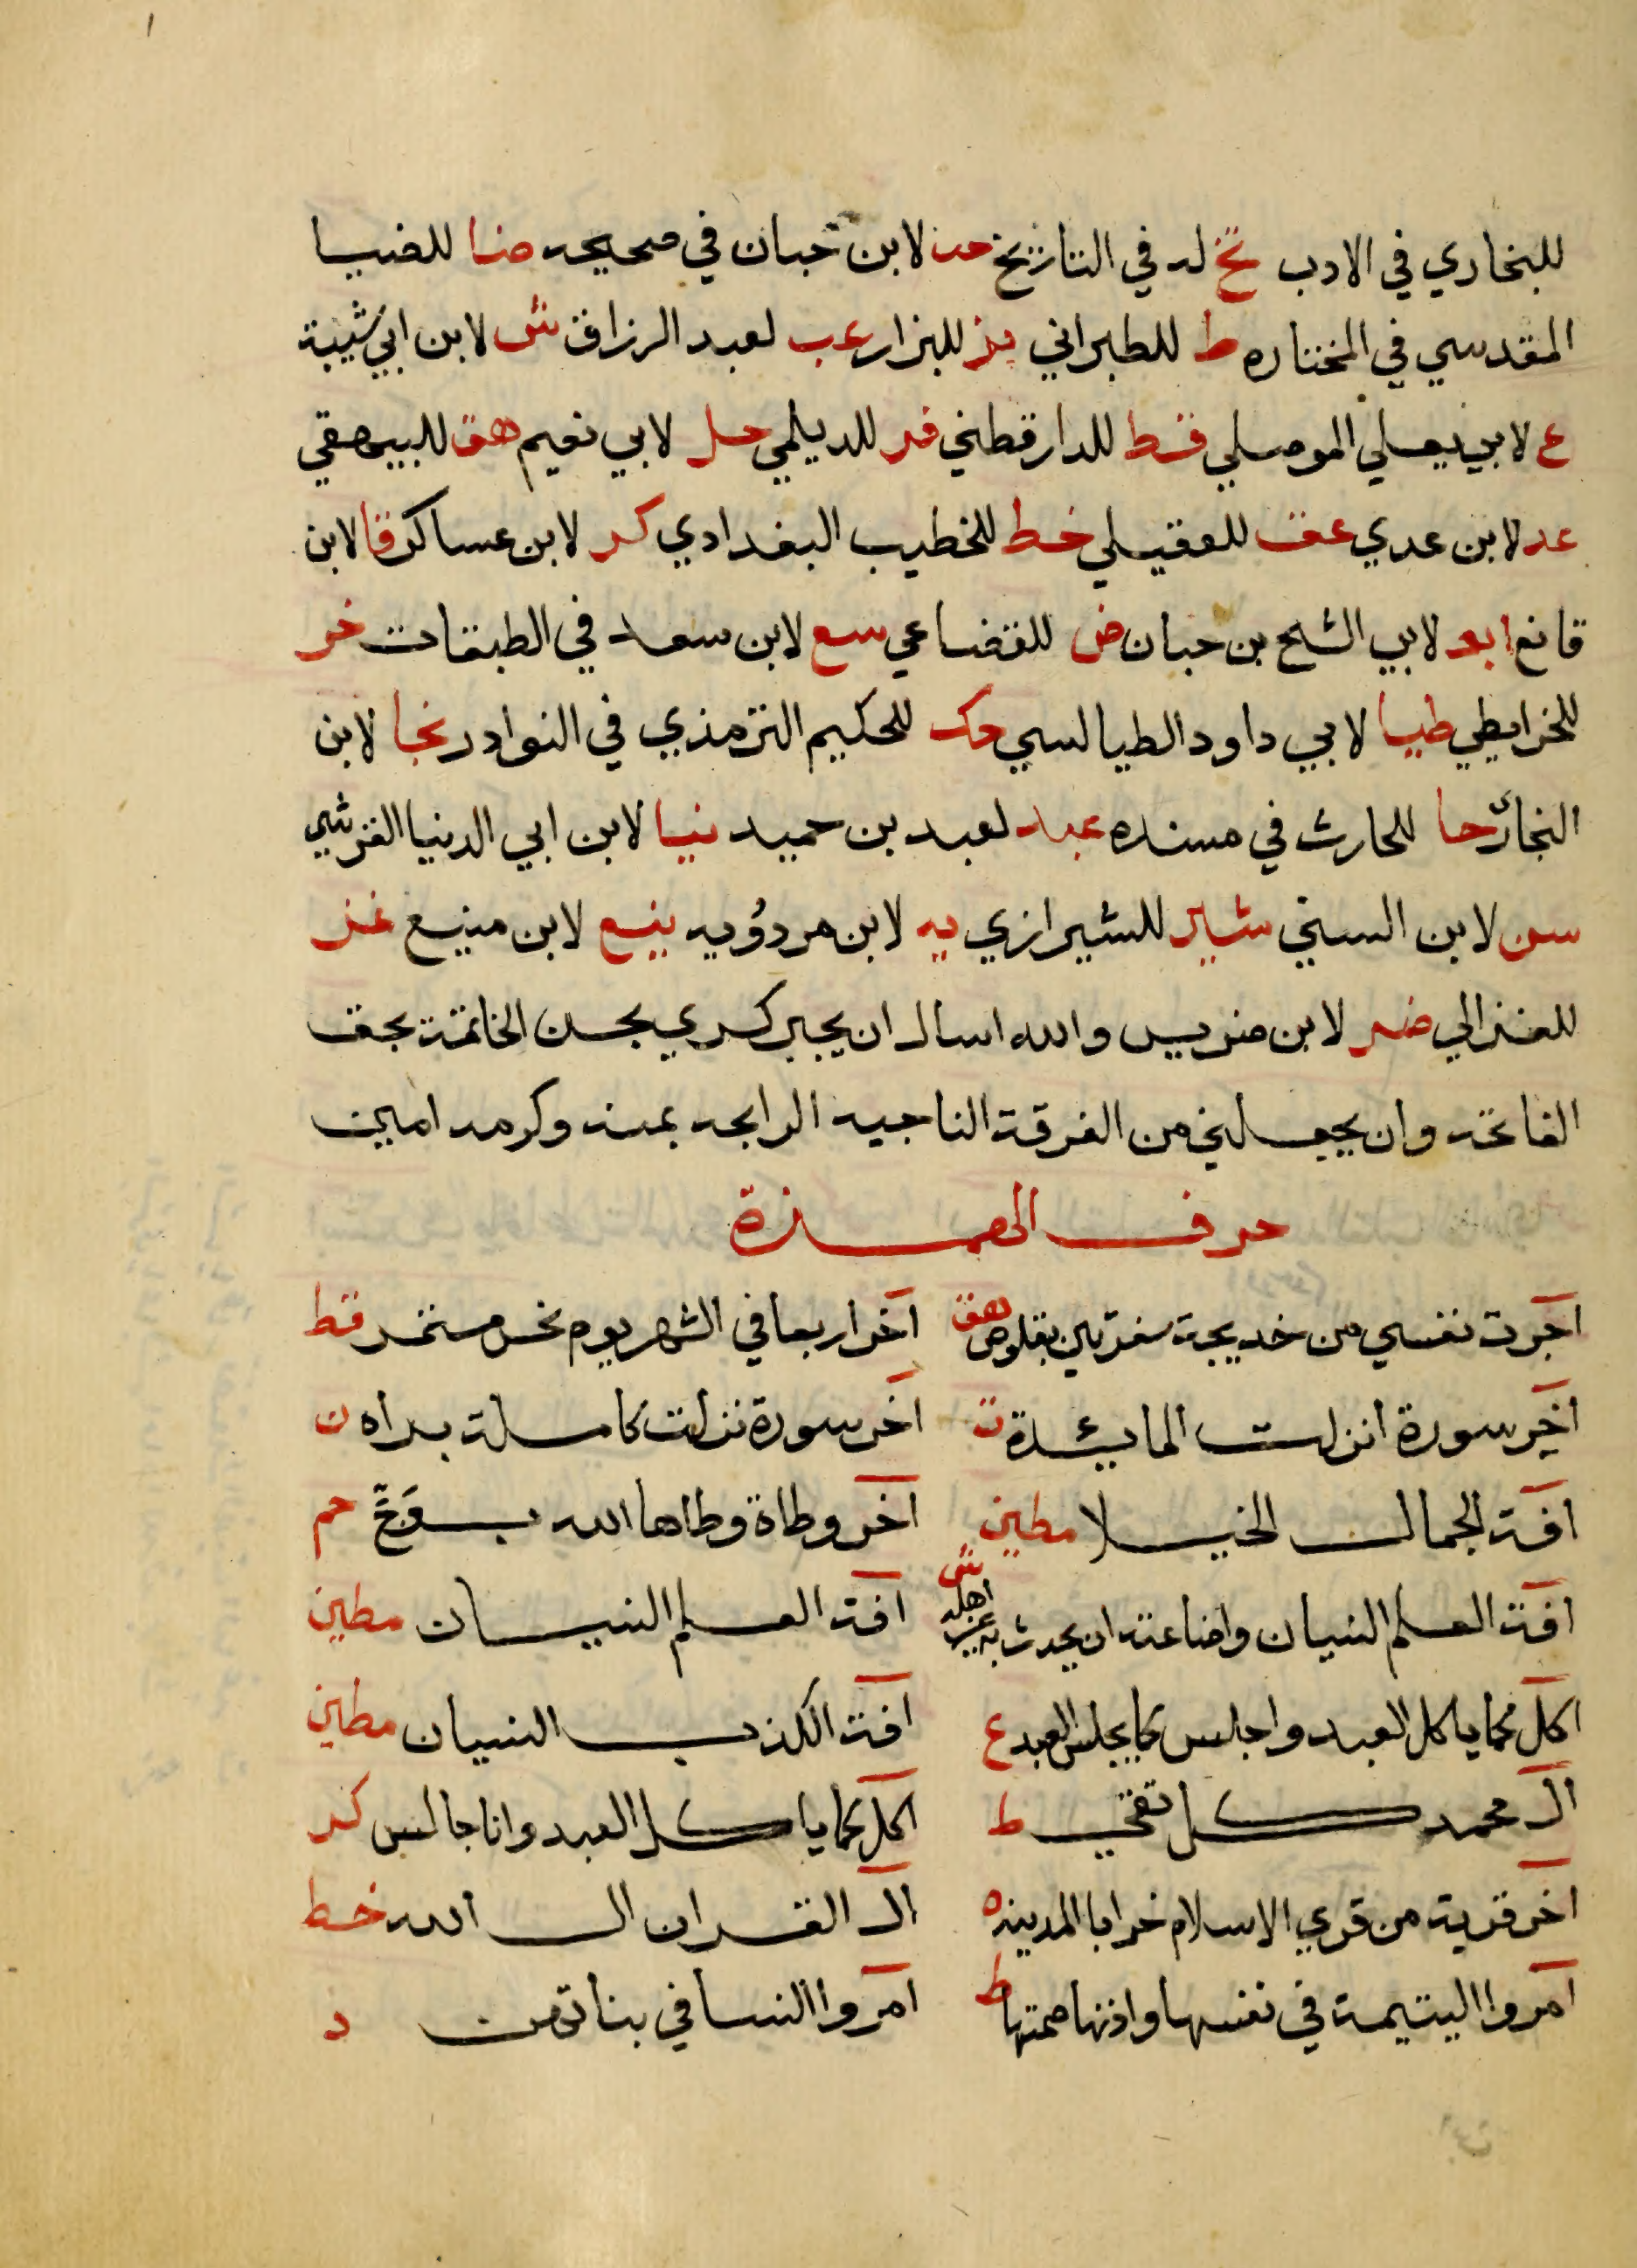 للبخاري في الادب تخ له في التاريخ حب لابن حبان في صحيحه ضا للضيا
المقدسي في المختاره ط للطبراني بز للبزار عب لعبد الرزاق ش لابن ابي شيبة
ع لابي يعلي الموصلي قط للدارقطني فر للديلمي حل لابي نعيم هق للبيهقي
عد لابن عدي عق للعقيلي خط للخطيب البغدادي كر لابن عساكر قا لابن
قانع ابو لابي الشيخ بن حبان ض للقضاعي سع لابن سعد في الطبقات خر
للخرايطي طيا لابي داود الطيالسي حك للحكيم الترمذي في النوادر نجا لابن
النجار حا للحارث في مسنده عبد لعبد بن حميد نيا لابن ابي الدنيا القرشي
سن لابن السني شير للشيرازي يه لابن مردويه ينع لابن منيع غز
للغزالي ضر لابن ضريس والله اسال ان يجبر كسري بحسن الخاتمة بحق
الفاتحه وان يجعلني من الفرقة الناجيه الرابحه بمنه وكرمه امين
حرف الهمزة
آجرت نفسي من خديجة سفرتين بقلوص هق آخر اربعا في الشهر يوم نحس مستمر قط
آخر سورة انزلت المايئدة ت آخر سورة نزلت كاملة براه ن
آفة الجمال الخيلا مطين آخر وطاة وطاها الله بوج حم
آفة العلم النسيان واضاعته ان يحدث به غير اهله ش آفة العلم النسيان مطين
آكل كما ياكل العبد واجلس كما يجلس العبد ع آفة الكذب النسيان مطين
آل محمد كل تقي ط آكل كما ياكل العبد وانا جالس كر
آخر قرية من قري الاسلام خرابا المدينه ه آل القران ال الله خط
آمروا اليتيمة في نفسها واذنها صمتها ط آمروا النسا في بناتهن د